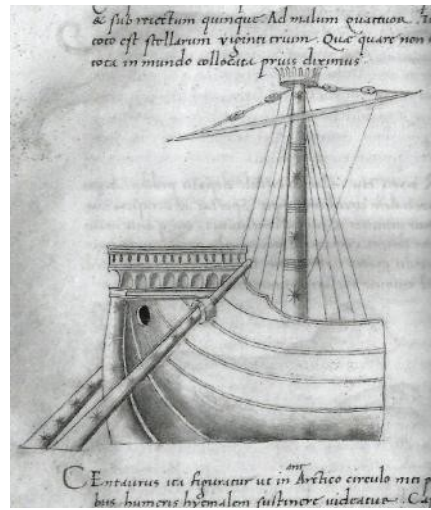 & subrectum quinque. Ad malum quattuor.
toto est stellarum viginti trium. Quæ quare non
tota in mundo collocata pruis diximus
CEntaurus ita figuratur ut in antArctico circulo niti
bus humeris hyemalem sustinere videatur. Cap